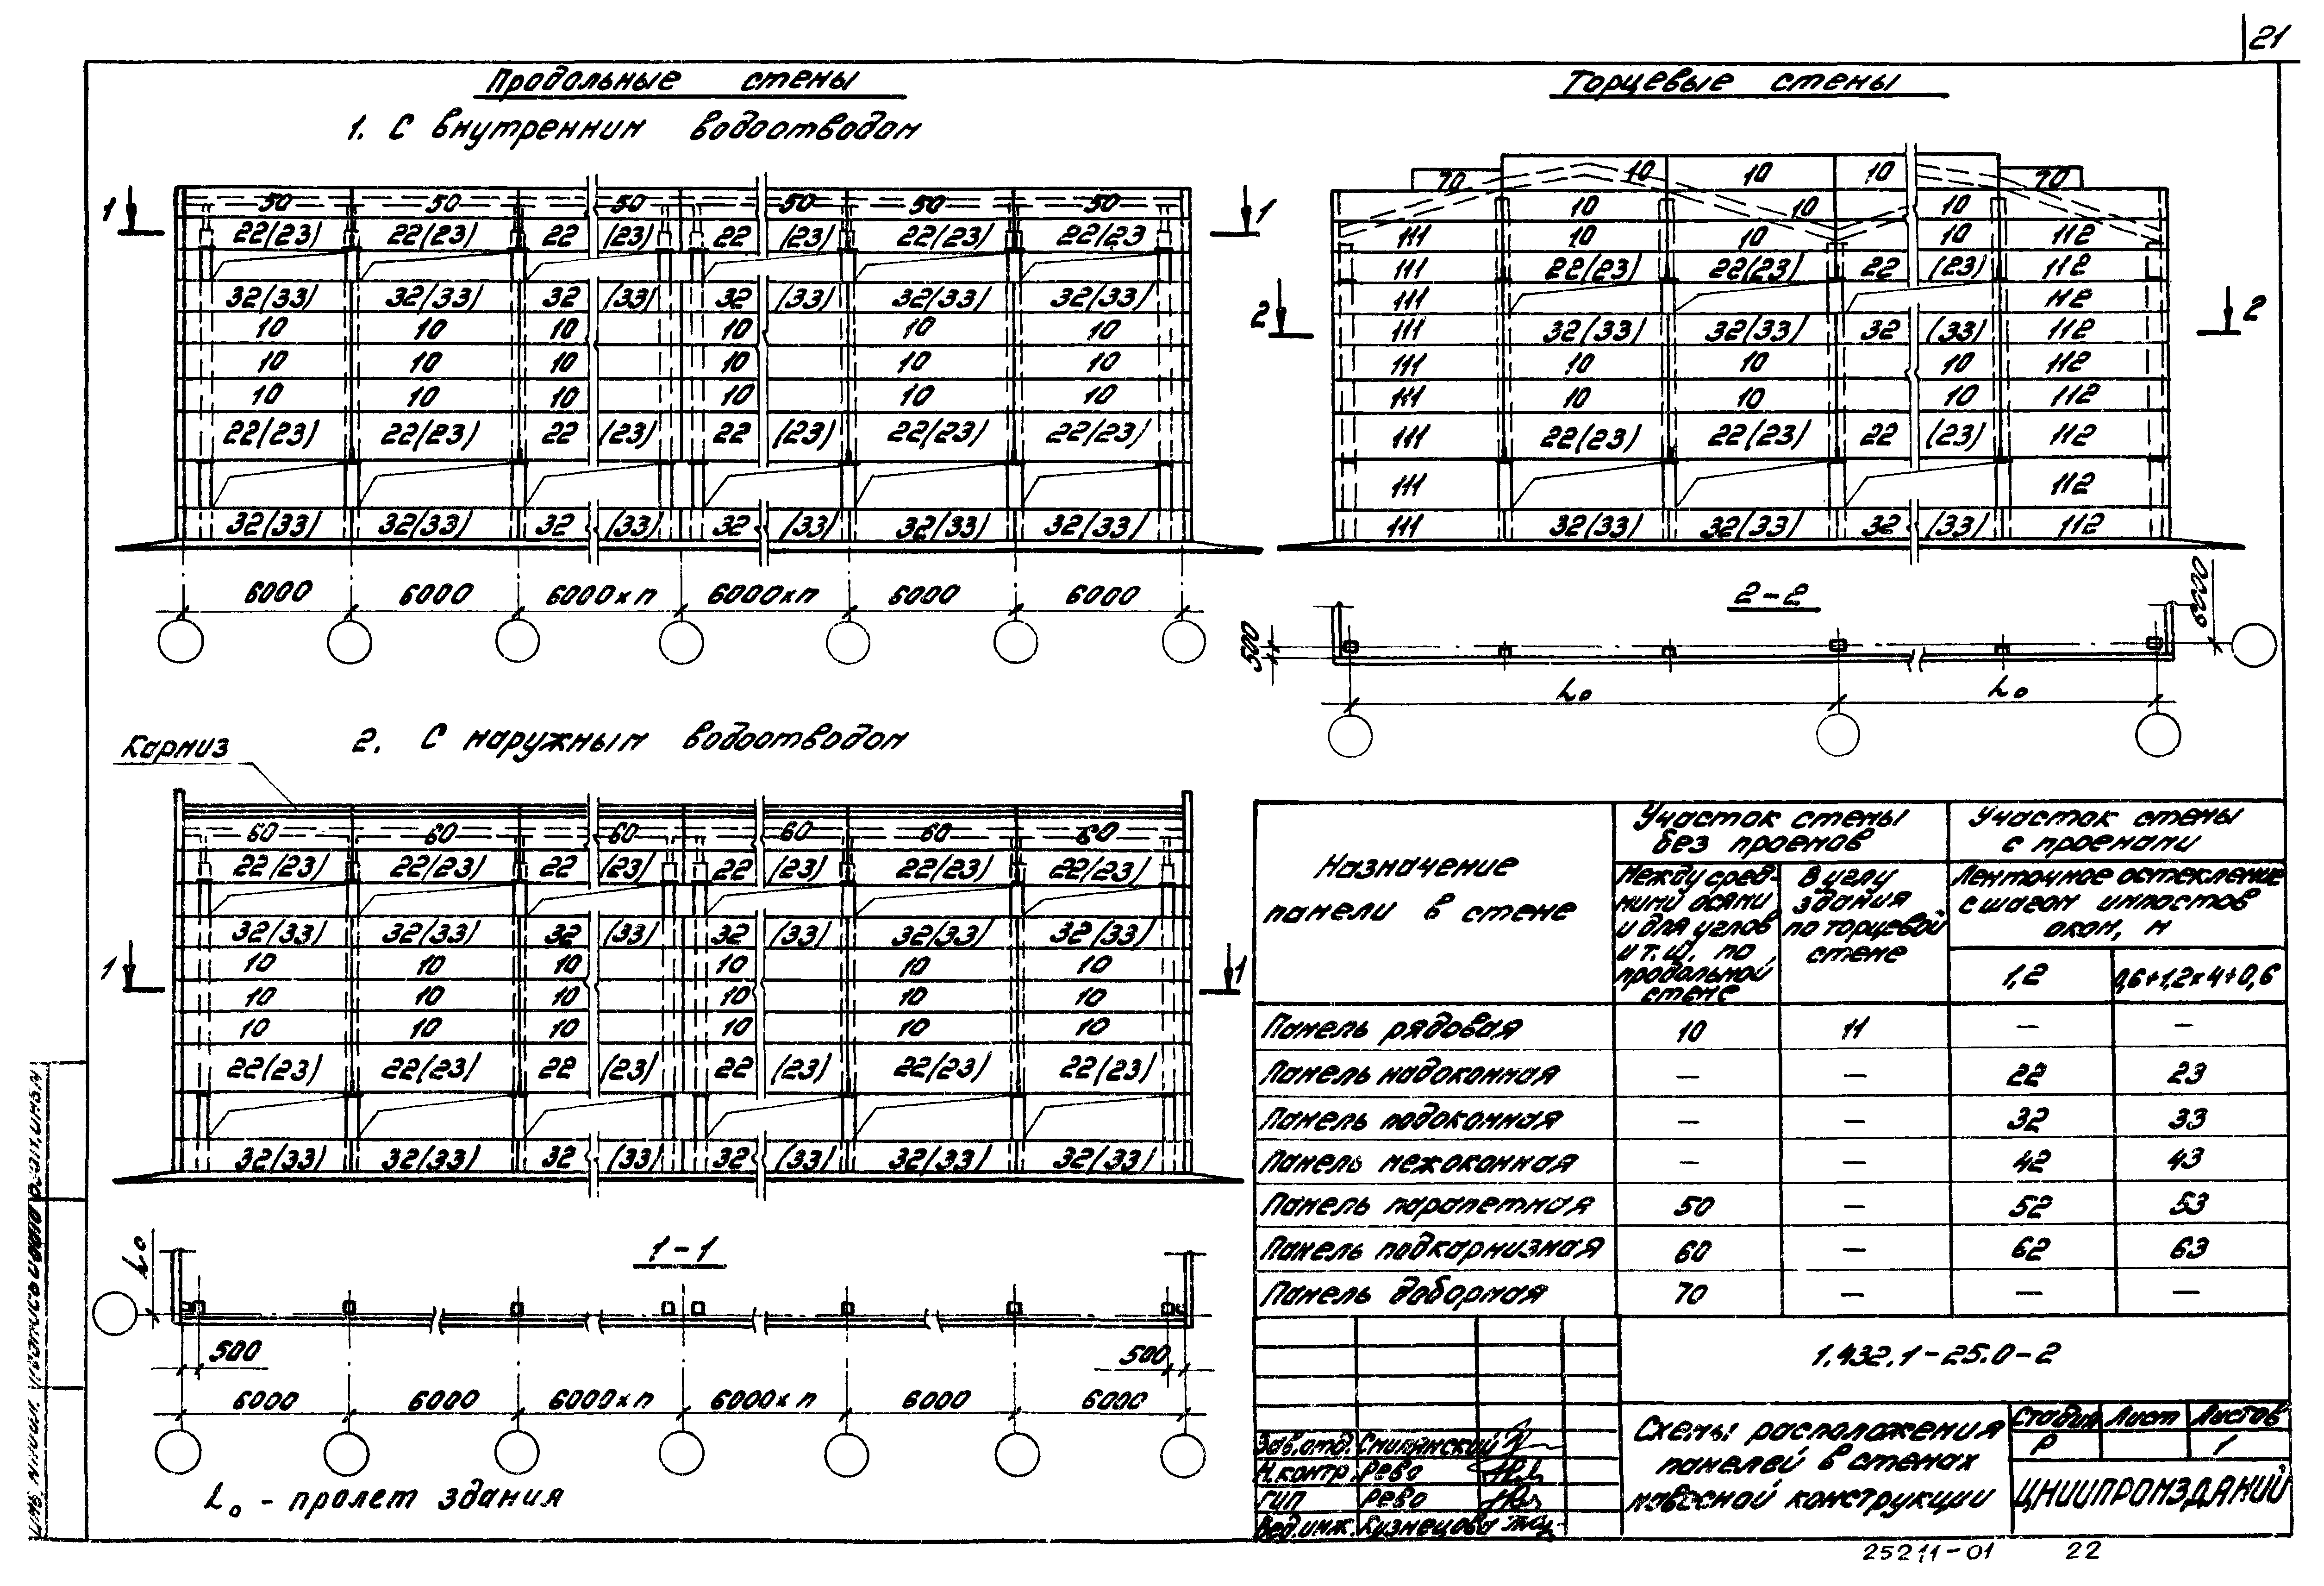 21
Продольные стены
1. С внутренним водоотводом
Торцевые стены
50 50 50 50 50 50
1 1
22(23) 22(23) 22 (23) 22 (23) 22(23) 22/23
32(33) 32(33) 32 (33) 32 (33) 32(33) 32(33)
10 10 10 10 10 10
10 10 10 10 10 10
10 10 10 10 10 10
22(23) 22(23) 22 (23) 22 (23) 22(23) 22(23)
32(33) 32(33) 32 (33) 32 (33) 32(33) 32(33)
6000 6000 6000×п 6000×п 6000 6000
70 10 10 10 70
10 10 10
111 10 10 10 112
111 22(23) 22(23) 22 (23) 112
111 112
2 2
111 32(33) 32(33) 32 (33) 112
111 10 10 10 112
111 10 10 10 112
111 22(23) 22(23) 22 (23) 112
111 112
111 32(33) 32(33) 32 (33) 112
2-2
500
6000
L₀ L₀
2. С наружным водоотводом
Карниз
60 60 60 60 60 60
22(23) 22(23) 22 (23) 22 (23) 22(23) 22(23)
32(33) 32(33) 32 (33) 32 (33) 32(33) 32(33)
1 1
10 10 10 10 10 10
10 10 10 10 10 10
10 10 10 10 10 10
22(23) 22(23) 22 (23) 22 (23) 22(23) 22(23)
32(33) 32(33) 32 (33) 32 (33) 32(33) 32(33)
1-1
L₀
500 500
6000 6000 6000×п 6000×п 6000 6000
L₀ - пролет здания
Назначение
панели в стене
Участок стены
без проемов
Участок стены
с проемами
Между сред-
ними осями
и для углов
и т.ш. по
продольной
стене
В углу
здания
по торцевой
стене
Ленточное остекление
с шагом импостов
окон, м
1,2 0,6+1,2×4+0,6
Панель рядовая 10 11 — —
Панель надоконная — — 22 23
Панель подоконная — — 32 33
Панель межоконная — — 42 43
Панель парапетная 50 — 52 53
Панель подкарнизная 60 — 62 63
Панель доборная 70 — — —
1.432.1-25.0-2
Зав.отд. Смилянский
Н.контр. Рево
ГИП Рево
Вед.инж. Кузнецова
Схемы расположения
панелей в стенах
навесной конструкции
Стадия Лист Листов
Р 1
ЦНИИПРОМЗДАНИЙ
25211-01 22